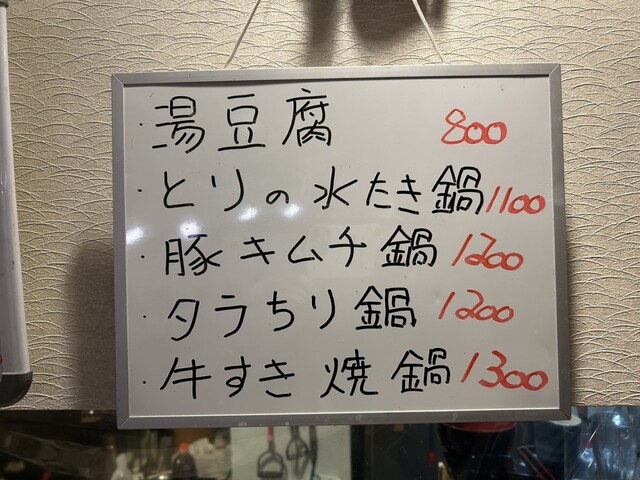 ・湯豆腐 800
・とりの水たき鍋 1100
・豚キムチ鍋 1200
・タラちり鍋 1200
・牛すき焼鍋 1300